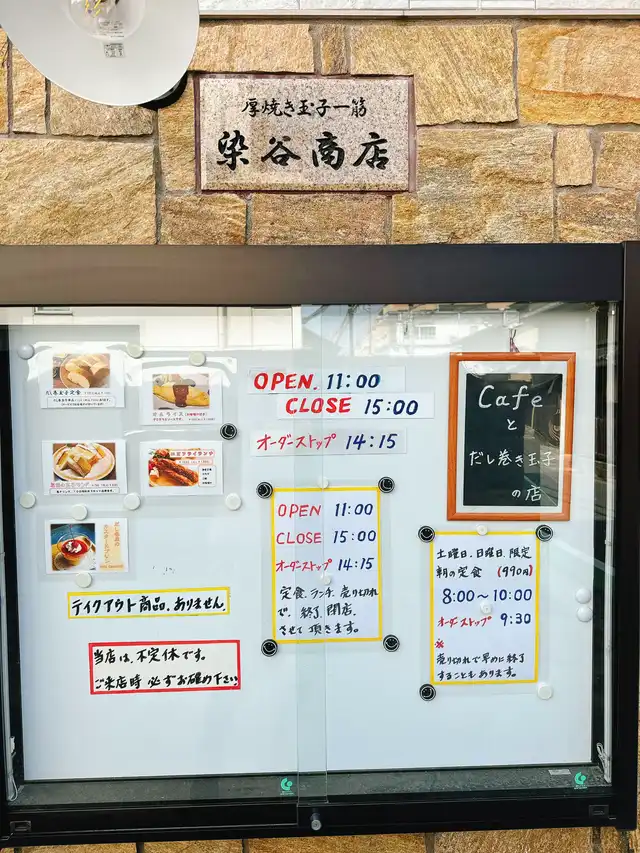 厚焼き玉子一筋
染谷商店
OPEN. 11:00
CLOSE 15:00
オーダーストップ 14:15
OPEN 11:00
CLOSE 15:00
オーダーストップ 14:15
定食、ランチ、売り切れ
で、終了、閉店、
させて頂きます。
Cafe
と
だし巻き玉子
の店
土曜日、日曜日、限定
朝の定食 (990円)
8:00〜10:00
オーダーストップ 9:30
※
売り切れで早めに終了
することもあります。
テイクアウト商品、ありません。
当店は、不定休です。
ご来店時 必ずお確め下さい